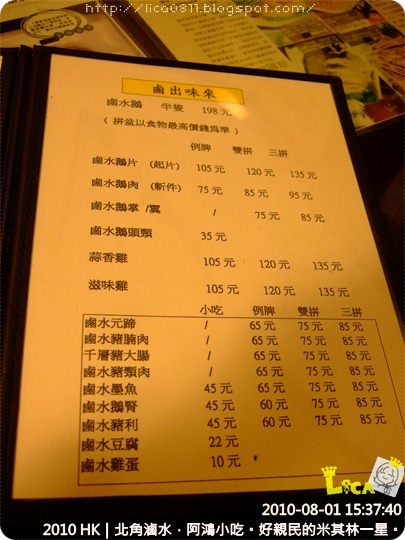 http://lica0811.blogspot.com/
鹵出味來
鹵水鵝 半隻 198 元
( 拼盆以食物最高價錢爲準 )
例牌 雙拼 三拼
鹵水鵝片 (起片) 105 元 120 元 135 元
鹵水鵝肉 (斬件) 75 元 85 元 95 元
鹵水鵝掌 /翼 / 75 元 85 元
鹵水鵝頭頸 35 元
蒜香雞 105 元 120 元 135 元
滋味雞 105 元 120 元 135 元
小吃 例牌 雙拼 三拼
鹵水元蹄 / 65 元 75 元 85 元
鹵水豬腩肉 / 65 元 75 元 85 元
千層豬大腸 / 65 元 75 元 85 元
鹵水豬頸肉 / 65 元 75 元 85 元
鹵水墨魚 45 元 65 元 75 元 85 元
鹵水鵝腎 45 元 60 元 75 元 85 元
鹵水豬利 45 元 60 元 75 元 85 元
鹵水豆腐 22 元
鹵水雞蛋 10 元
LICA
2010-08-01 15:37:40
2010 HK | 北角滷水，阿鴻小吃。好親民的米其林一星。